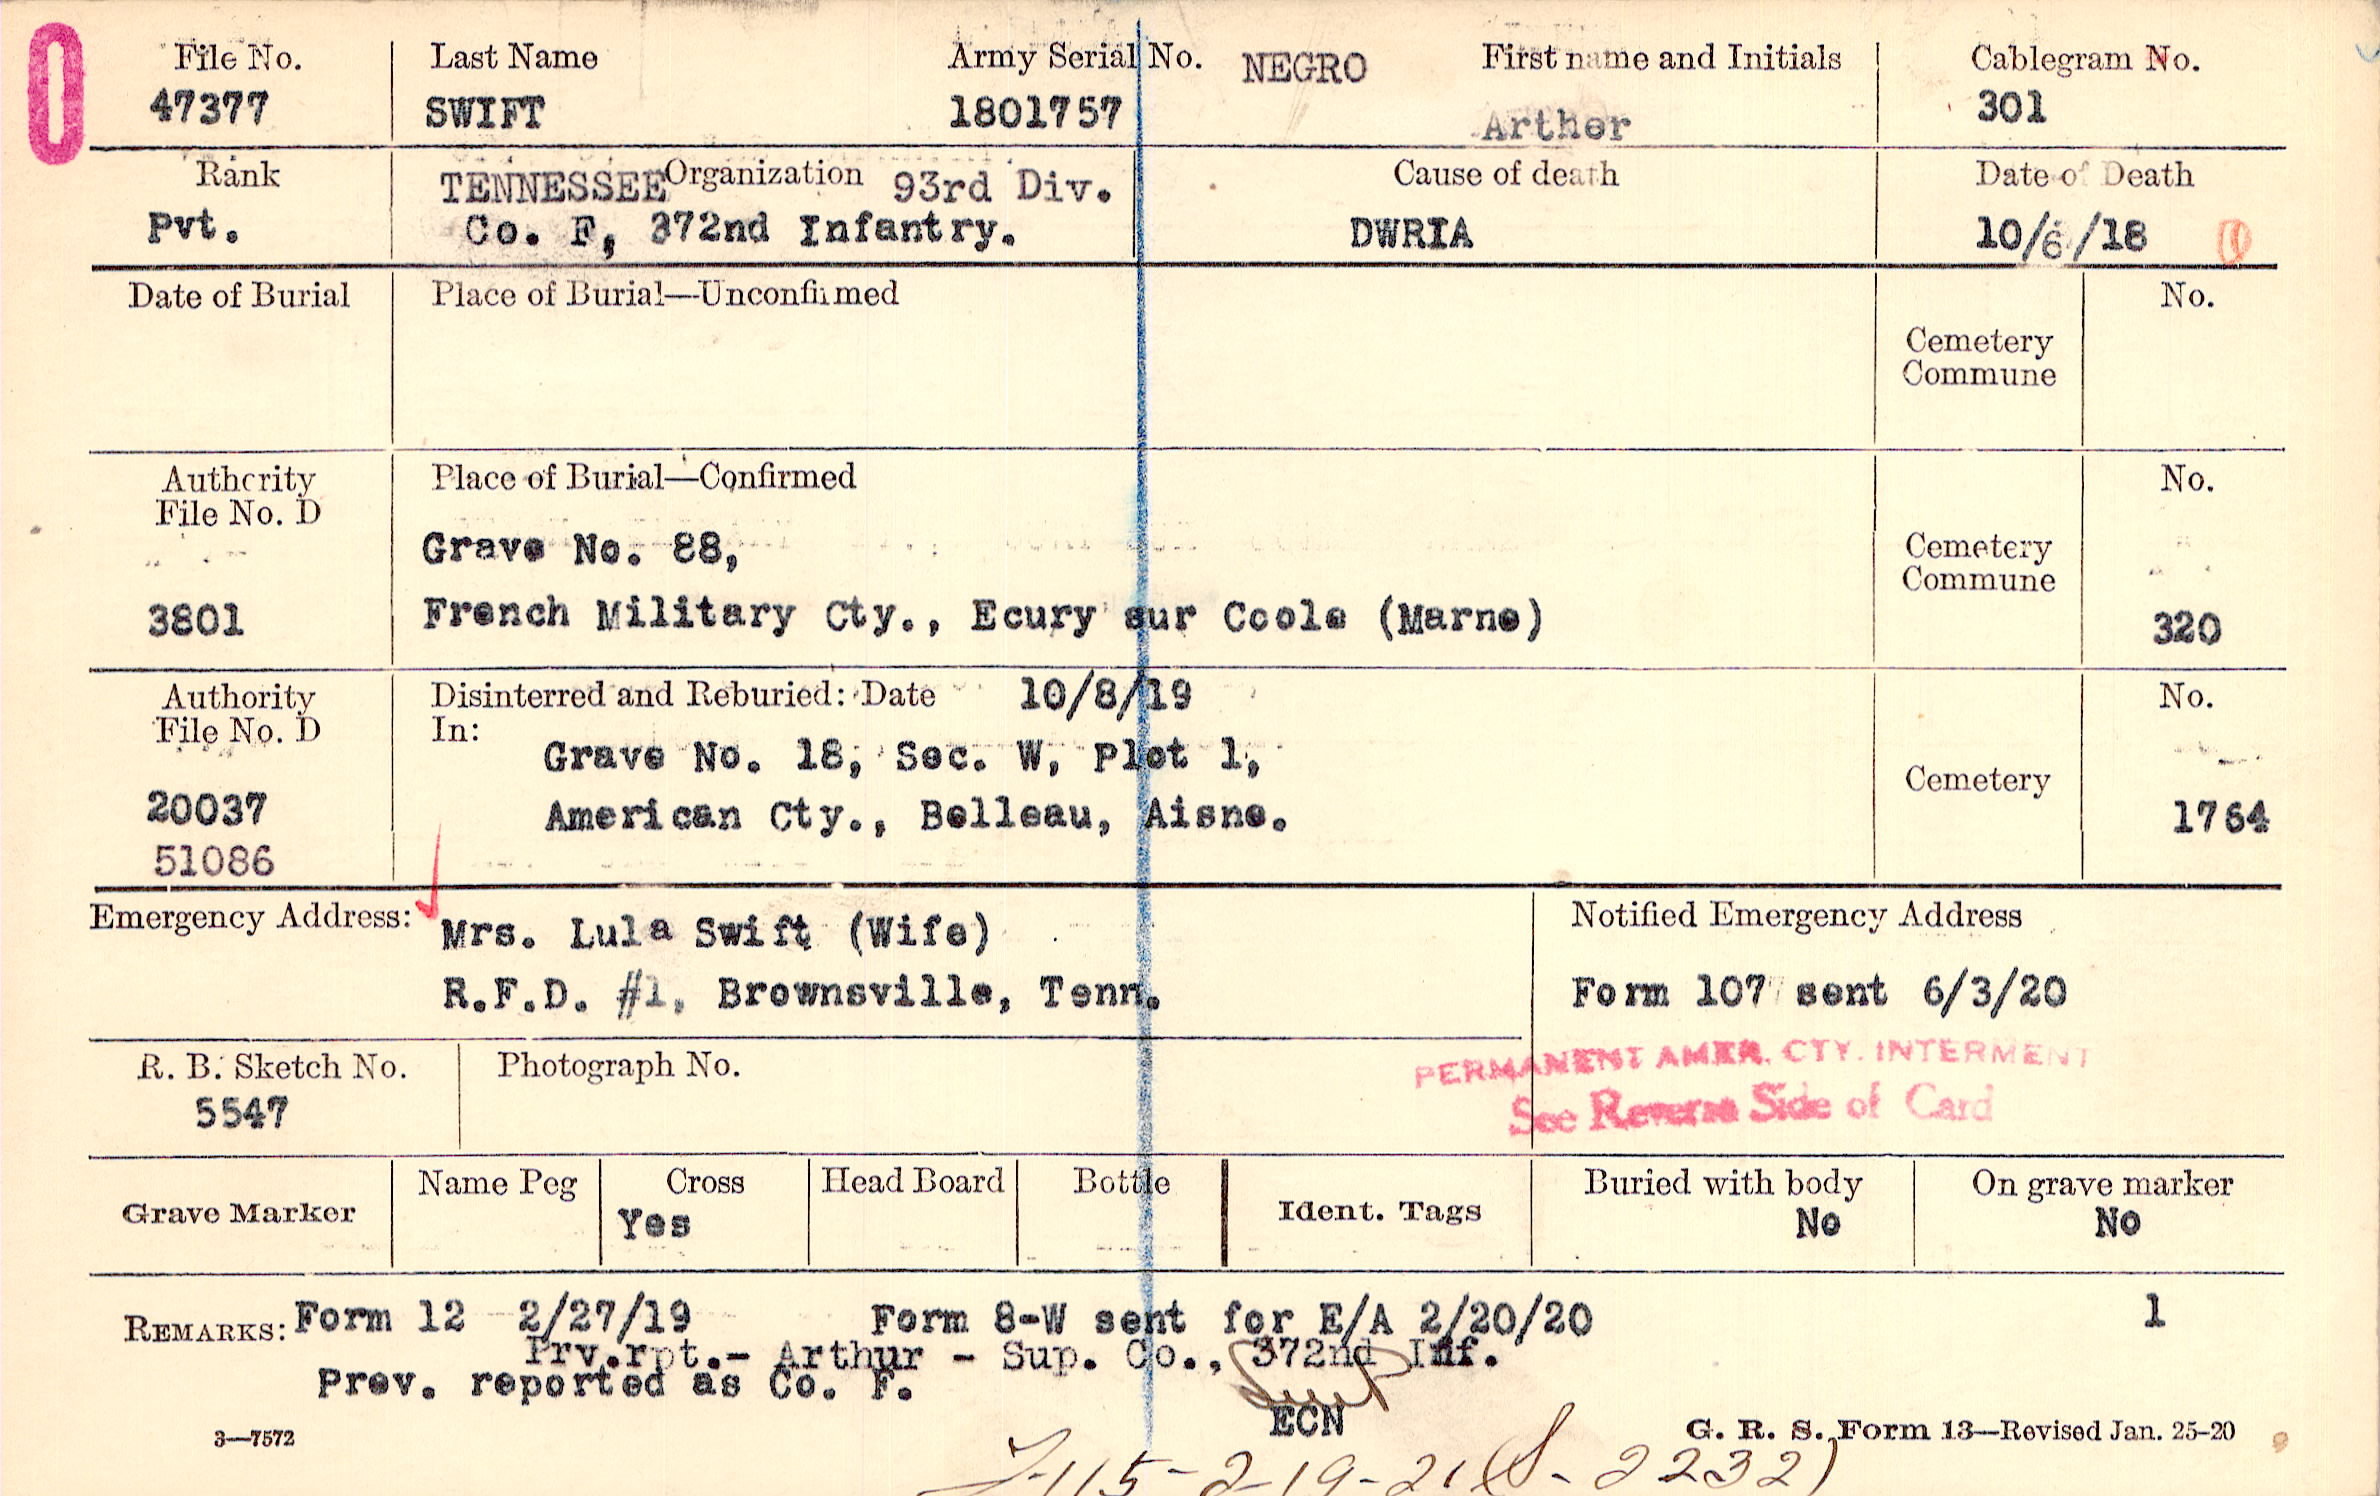 0
File No. Last Name Army Serial No. NEGRO First name and Initials Cablegram No.
47377 SWIFT 1801757 Arther 301
Rank TENNESSEE Organization 93rd Div. Cause of death Date of Death
Pvt. Co. F, 372nd Infantry. DWRIA 10/6/18
Date of Burial Place of Burial—Unconfirmed No.
Cemetery
Commune
Authority Place of Burial—Confirmed No.
File No. D
Grave No. 88, Cemetery
Commune
3801 French Military Cty., Ecury sur Coole (Marne) 320
Authority Disinterred and Reburied: Date 10/8/19 No.
File No. D In:
Grave No. 18, Sec. W, Plot 1,
Cemetery
20037 American Cty., Belleau, Aisne. 1764
51086
Emergency Address: Mrs. Lula Swift (Wife) Notified Emergency Address
R.F.D. #1, Brownsville, Tenn. Form 107 sent 6/3/20
R. B. Sketch No. Photograph No. PERMANENT AMER. CTY. INTERMENT
5547 See Reverse Side of Card
Grave Marker Name Peg Cross Head Board Bottle Ident. Tags Buried with body On grave marker
Yes No No
REMARKS: Form 12 2/27/19 Form 8-W sent for E/A 2/20/20 1
Prv.rpt.- Arthur - Sup. Co., 372nd Inf.
Prev. reported as Co. F.
ECN
3—7572 G. R. S. Form 13—Revised Jan. 25-20
-115-2-19-21 (S-2232)